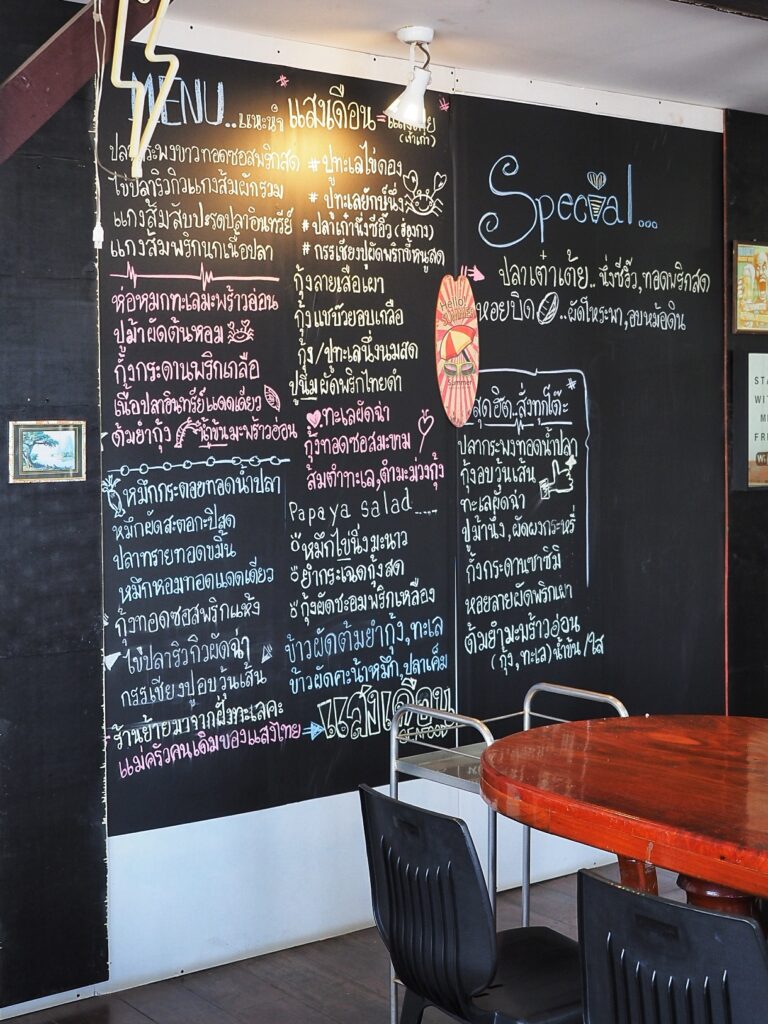 MENU..แนะนำ แสงเดือน=แสงไทย
(เจ้าเก่า)
ปลากระพงขาวทอดซอสพริกสด
ไข่ปลาริวกิวแกงส้มผักรวม
แกงส้มสับปะรดปลาอินทรีย์
แกงส้มพริกนกเนื้อปลา
ห่อหมกทะเลมะพร้าวอ่อน
ปูม้าผัดต้นหอม
กั้งกระดานพริกเกลือ
เนื้อปลาอินทรีย์แดดเดียว
ต้มยำกุ้ง น้ำข้นมะพร้าวอ่อน
หมึกกระดอยทอดน้ำปลา
หมึกผัดสะตอกะปิสด
ปลาทรายทอดขมิ้น
หมึกหอมทอดแดดเดียว
กุ้งทอดซอสพริกแห้ง
ไข่ปลาริวกิวผัดฉ่า
กรรเชียงปูอบวุ้นเส้น
ร้านย้ายมาจากฝั่งทะเลคะ
แม่ครัวคนเดิมของแสงไทย
# ปูทะเลไข่ดอง
# ปูทะเลยักษ์นึ่ง
# ปลาเก๋านึ่งซีอิ๊ว (ฮ่องกง)
# กรรเชียงปูผัดพริกขี้หนูสด
กุ้งลายเสือเผา
กุ้งแชบ๊วยอบเกลือ
กุ้ง/ปูทะเลนึ่งนมสด
ปูนิ่มผัดพริกไทยดำ
ทะเลผัดฉ่า
กุ้งทอดซอสมะขาม
ส้มตำทะเล,ตำมะม่วงกุ้ง
Papaya salad....
หมึกไข่นึ่งมะนาว
ยำกระเฉดกุ้งสด
กุ้งผัดชะอมพริกเหลือง
ข้าวผัดต้มยำกุ้ง,ทะเล
ข้าวผัดคะน้าหมึก,ปลาเค็ม
แสงเดือน
SEAFOOD
Special...
ปลาเต๋าเต้ย..นึ่งซีอิ๊ว,ทอดพริกสด
หอยปิด..ผัดโหระพา,อบหม้อดิน
Hello!
Summer
Summer
สุดฮิต..สั่งทุกโต๊ะ
ปลากระพงทอดน้ำปลา
กุ้งอบวุ้นเส้น
ทะเลผัดฉ่า
ปูม้านึ่ง,ผัดผงกะหรี่
กั้งกระดานซาชิมิ
หอยลายผัดพริกเผา
ต้มยำมะพร้าวอ่อน
(กุ้ง,ทะเล)น้ำข้น/ใส